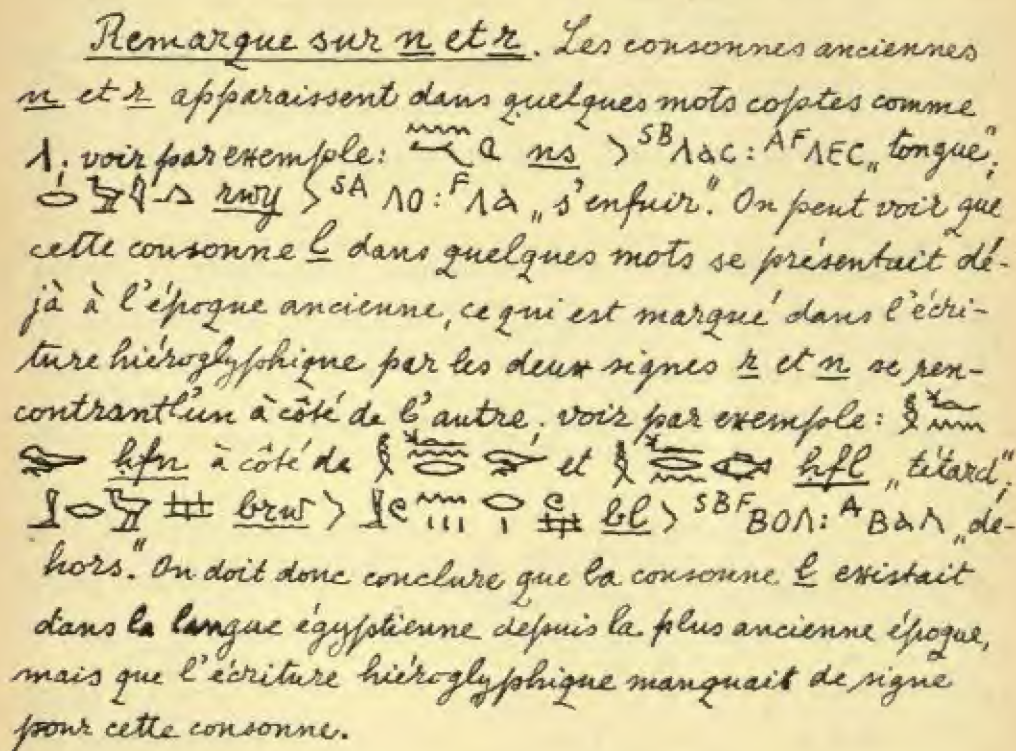 Remarque sur n et r. Les consonnes anciennes
n et r apparaissent dans quelques mots coptes comme
ⲗ; voir par exemple: ns > SB ⲗⲁⲥ: AF ⲗⲉⲥ „tongue“;
rwy > SA ⲗⲟ: F ⲗⲁ „s'enfuir“. On peut voir que
cette consonne l dans quelques mots se présentait dé-
jà à l'époque ancienne, ce qui est marqué dans l'écri-
ture hiéroglyphique par les deux signes r et n se ren-
contrant l'un à côté de l'autre; voir par exemple:
ḥfn à côté de et ḥfl „tétard“;
brw > bl > SBF ⲃⲟⲗ: A ⲃⲁⲗ „de-
hors“. On doit donc conclure que la consonne l existait
dans la langue égyptienne depuis la plus ancienne époque,
mais que l'écriture hiéroglyphique manquait de signe
pour cette consonne.